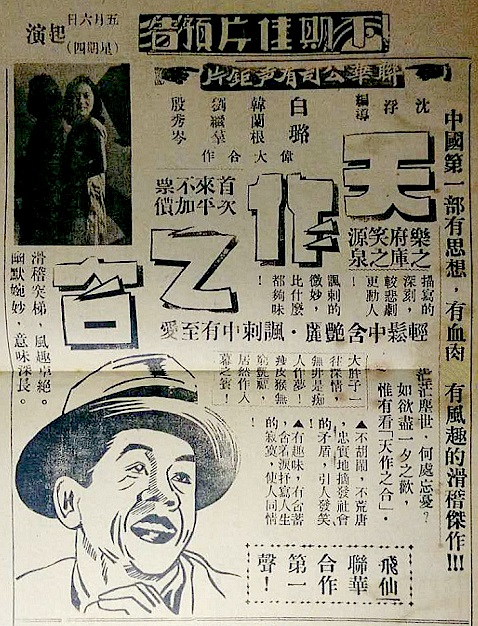 下期佳片預告
五月六日
(星期四)
起演
聯華公司有聲鉅片
中國第一部有思想,有血肉 有風趣的滑稽傑作!!!
沈浮
編導
白璐
韓蘭根
劉繼羣
殷秀岑
偉大合作
天作之合
樂之
府庫
笑之
源泉
首次
來平
不加
票價
描寫的
深刻,
較悲劇
更動人
!
諷刺的
微妙,
比什麼
都夠味
!
輕鬆中含艷麗・諷刺中有至愛
茫茫塵世,何處忘憂?
如欲盡一夕之歡,
惟有看「天作之合」。
大胖子一
往深情,
無非是痴
人作夢!
瘦皮猴無
艷福,
居然作入
幕之賓!
▲不胡鬧,不荒唐
,忠實地揭發社會
的矛盾,引人發笑
!
▲有趣味,有含蓄
,含着淚抒寫人生
的寂寞,使人同情
!
滑稽突梯,風趣卓絕。
幽默婉妙,意味深長。
飛仙
聯華
合作
第一
聲!